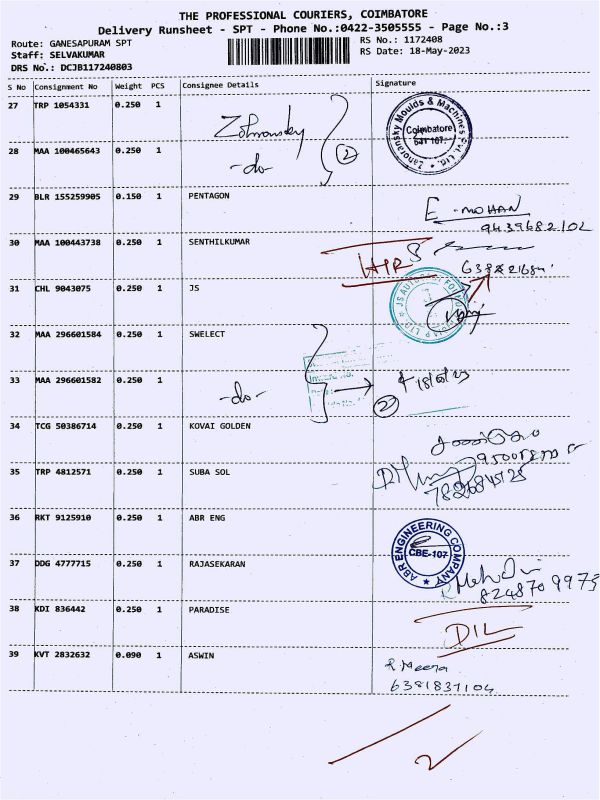 THE PROFESSIONAL COURIERS, COIMBATORE
Delivery Runsheet - SPT - Phone No.:0422-3505555 - Page No.:3
Route: GANESAPURAM SPT
RS No.: 1172408
Staff: SELVAKUMAR
RS Date: 18-May-2023
DRS No.: DCJB117240803
S No Consignment No Weight PCS Consignee Details Signature
27 TRP 1054331 0.250 1
Zahoransky Moulds & Machines Pvt. Ltd.
Coimbatore
641 107.
28 MAA 100465643 0.250 1
-do- 2
29 BLR 155259905 0.150 1 PENTAGON
E. MOHAN
30 MAA 100443738 0.250 1 SENTHILKUMAR
31 CHL 9043075 0.250 1 JS
32 MAA 296601584 0.250 1 SWELECT
33 MAA 296601582 0.250 1
-do- 2
34 TCG 50386714 0.250 1 KOVAI GOLDEN
35 TRP 4812571 0.250 1 SUBA SOL
36 RKT 9125910 0.250 1 ABR ENG
ABR ENGINEERING COMPANY
CBE-107
37 DDG 4777715 0.250 1 RAJASEKARAN
8248709975
38 KDI 836442 0.250 1 PARADISE
DIL
39 KVT 2832632 0.090 1 ASWIN
R Meera
6381831104